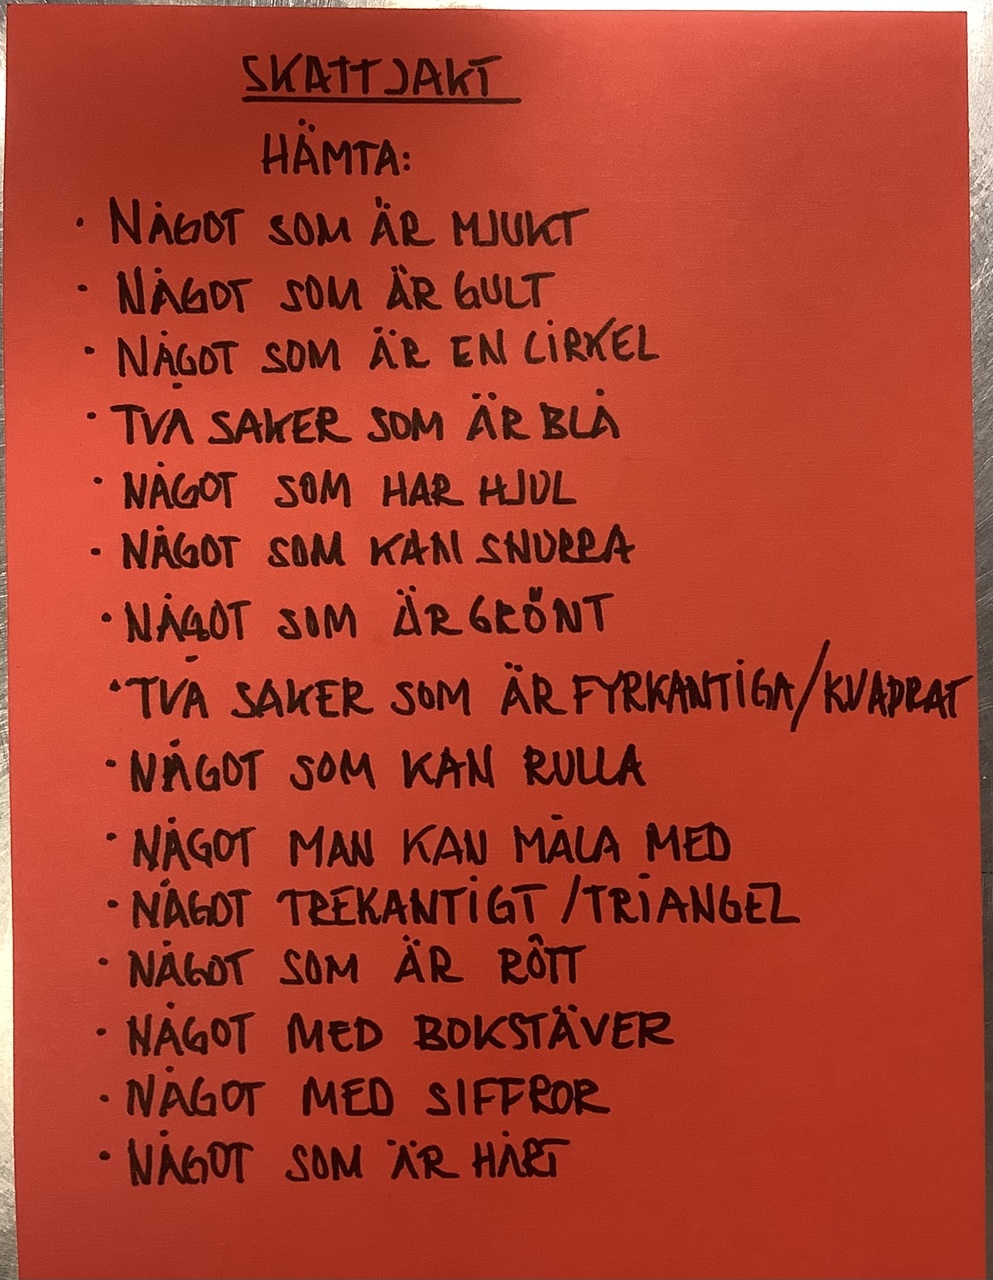 SKATTJAKT
HÄMTA:
· NÅGOT SOM ÄR MJUKT
· NÅGOT SOM ÄR GULT
· NÅGOT SOM ÄR EN CIRKEL
· TVÅ SAKER SOM ÄR BLÅ
· NÅGOT SOM HAR HJUL
· NÅGOT SOM KAN SNURRA
· NÅGOT SOM ÄR GRÖNT
· TVÅ SAKER SOM ÄR FYRKANTIGA/KVADRAT
· NÅGOT SOM KAN RULLA
· NÅGOT MAN KAN MÅLA MED
· NÅGOT TREKANTIGT/TRIANGEL
· NÅGOT SOM ÄR RÖTT
· NÅGOT MED BOKSTÄVER
· NÅGOT MED SIFFROR
· NÅGOT SOM ÄR HÅRT